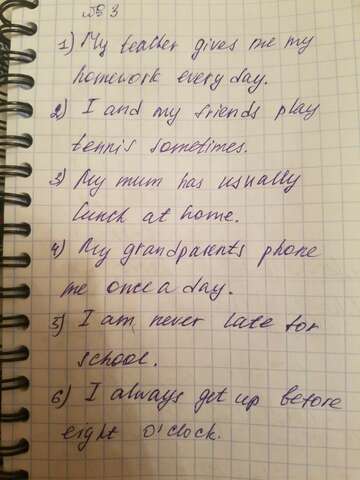 № 3
1) My teacher gives me my
homework every day.
2) I and my friends play
tennis sometimes.
3) My mum has usually
lunch at home.
4) My grandparents phone
me once a day.
5) I am never late for
school.
6) I always get up before
eight o'clock.